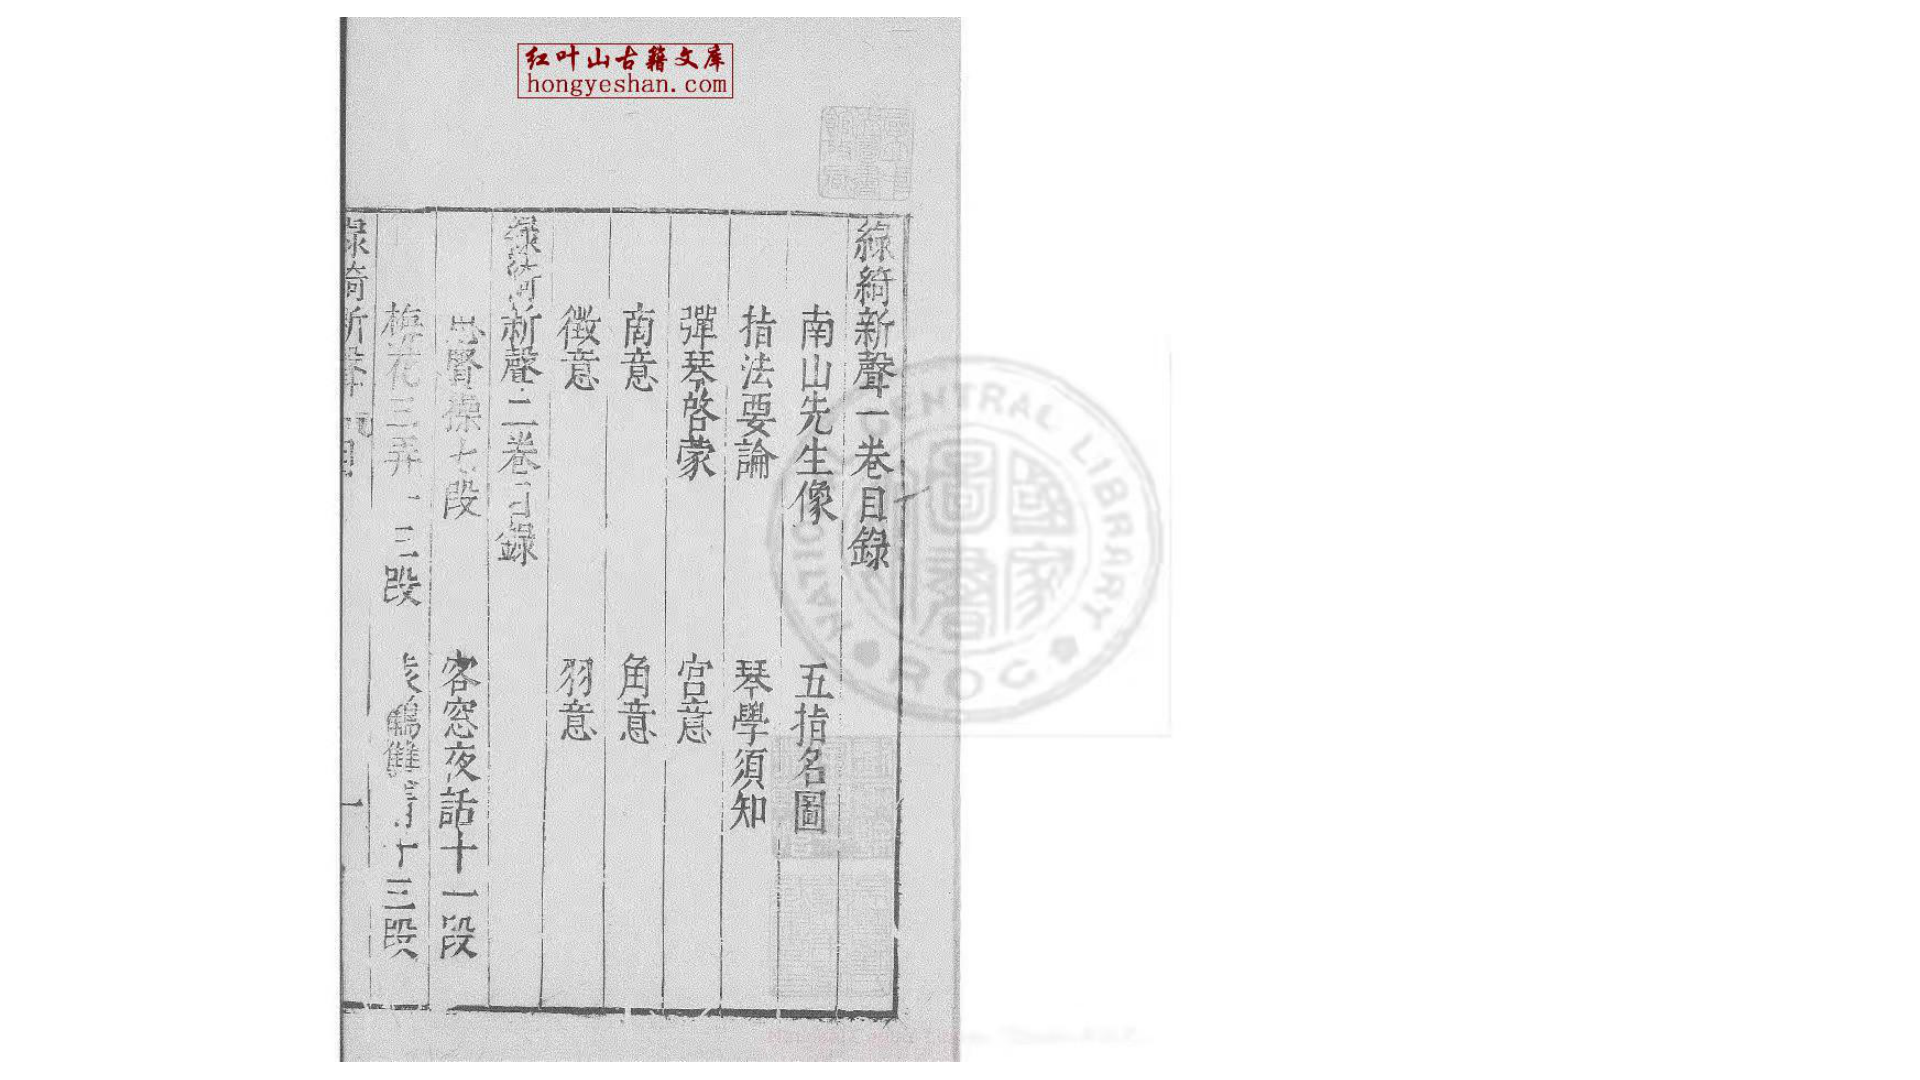 红叶山古籍文库
hongyeshan.com
綠綺新聲一卷目錄
南山先生像 五指名圖
指法要論 琴學須知
彈琴啓蒙 宮意
商意 角意
徵意 羽意
綠綺新聲二卷目錄
思賢操七段 客窓夜話十一段
梅花三弄 三段 鶴雙 十三段
綠綺新聲 目 一
NATIONAL CENTRAL LIBRARY
ROC
國家圖書